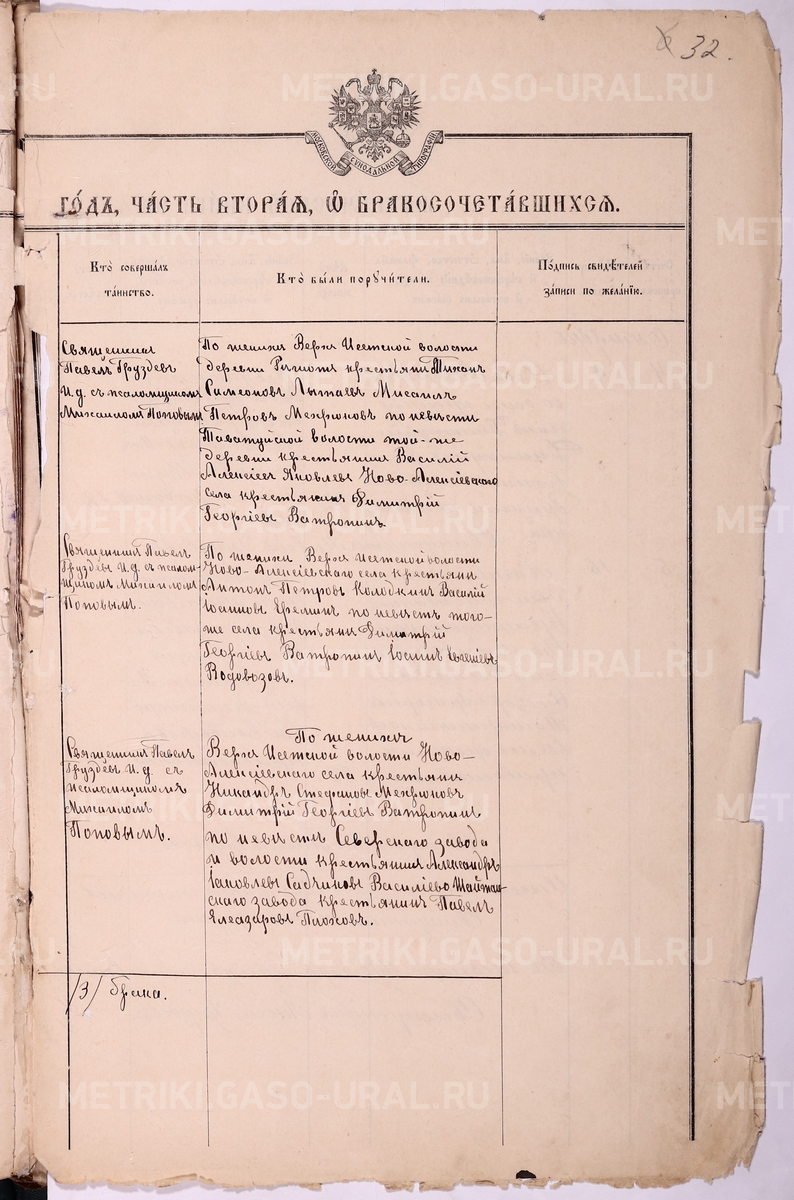 32.
МОСКОВСКОЙ СѴНОДАЛЬНОЙ ТИПОГРАФІИ
ГО́ДЪ, ЧА́СТЬ ВТОРА́Я, Ѽ БРАКОСОЧЕТА́ВШИХСЯ.
Кто̀ соверша́лъ
та́инство.
Кто̀ бы́ли порꙋчи́тели.
По́дпись свидѣ́телей
за́писи по жела́нїю.
Священникъ
Павелъ Груздевъ
И. д. съ псаломщикомъ
Михаиломъ Поповымъ
По женихѣ Верхъ Исетской волости
деревни крестьяне Тихонъ
Симеоновъ Лытаевъ Мисаилъ
Петровъ Мехрюковъ по невѣстѣ
Таватуйской волости той-же
деревни крестьянинъ Василій
Алексіевъ Яковлевъ Ново-Алексіевскаго
села крестьянинъ Димитрій
Георгіевъ Ватропинъ
Священникъ Павелъ
Груздевъ И. д. съ псалом-
щикомъ Михаиломъ
Поповымъ.
По женихѣ Верхъ Исетской волости
Ново-Алексіевскаго села крестьяне
Антонъ Петровъ Колодкинъ Василій
Іоанновъ Ереминъ по невѣстѣ того-
же села крестьяне Димитрій
Георгіевъ Ватропинъ Іоаннъ Евгеніевъ
Водовозовъ.
Священникъ Павелъ
Груздевъ И. д. съ
псаломщикомъ
Михаиломъ
Поповымъ.
По женихѣ
Верхъ Исетской волости Ново-
Алексіевскаго села крестьяне
Никандръ Стефановъ Мехрюковъ
Димитрій Георгіевъ Ватропинъ
по невѣстѣ Северскаго завода
и волости крестьянинъ Александръ
Іаковлевъ Садчиковъ Василіево Шайтан-
скаго завода крестьянинъ Павелъ
Елеазаровъ Плоховъ.
/3/ брака.
METRIKI.GASO-URAL.RU